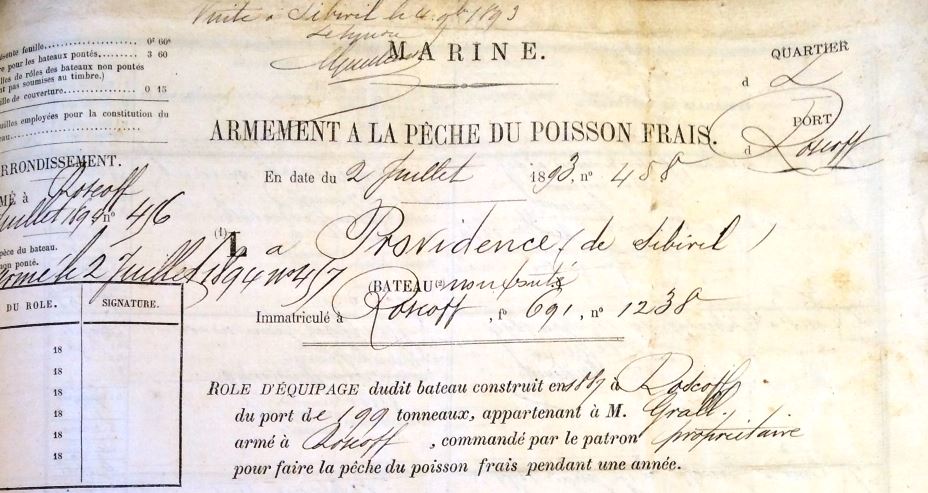 Visite à Sibiril le 4 9bre 1893
MARINE.
QUARTIER
d
PORT
d Roscoff
ésente feuille 0f 60c
e pour les bateaux pontés 3 60
lles de rôles des bateaux non pontés
nt pas soumises au timbre.)
ille de couverture 0 15
uilles employées pour la constitution du
eau
ARMEMENT A LA PÊCHE DU POISSON FRAIS.
En date du 2 Juillet 1893, nº 488
RRONDISSEMENT.
MÉ à Roscoff
Juillet 189 nº 416
pèce du bateau.
non ponté.
armé le 2 Juillet 1894 nº 457
(1) La Providence (de Sibiril)
BATEAU (2) non ponté
Immatriculé à Roscoff, fº 691, nº 1238
DU ROLE. SIGNATURE.
18
18
18
18
18
18
ROLE D'ÉQUIPAGE dudit bateau construit en 1887 à Roscoff
du port de 1,99 tonneaux, appartenant à M. Grall
armé à Roscoff, commandé par le patron propriétaire
pour faire la pêche du poisson frais pendant une année.